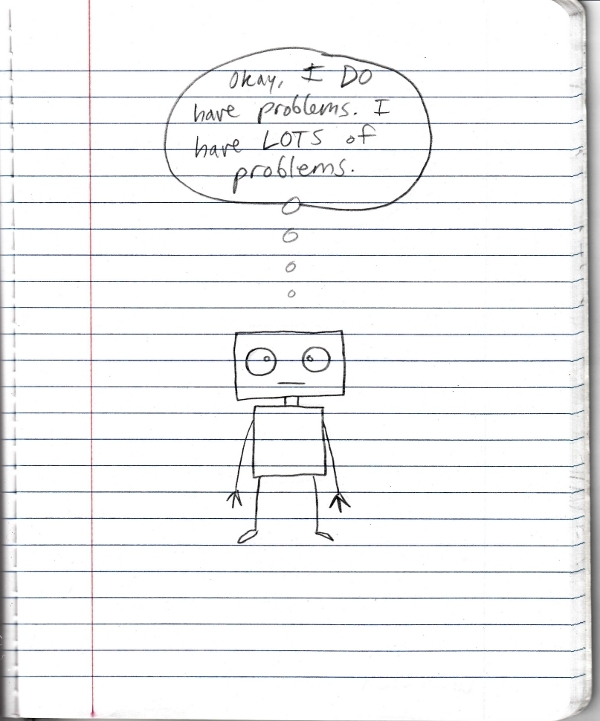 Okay, I DO
have problems. I
have LOTS of
problems.